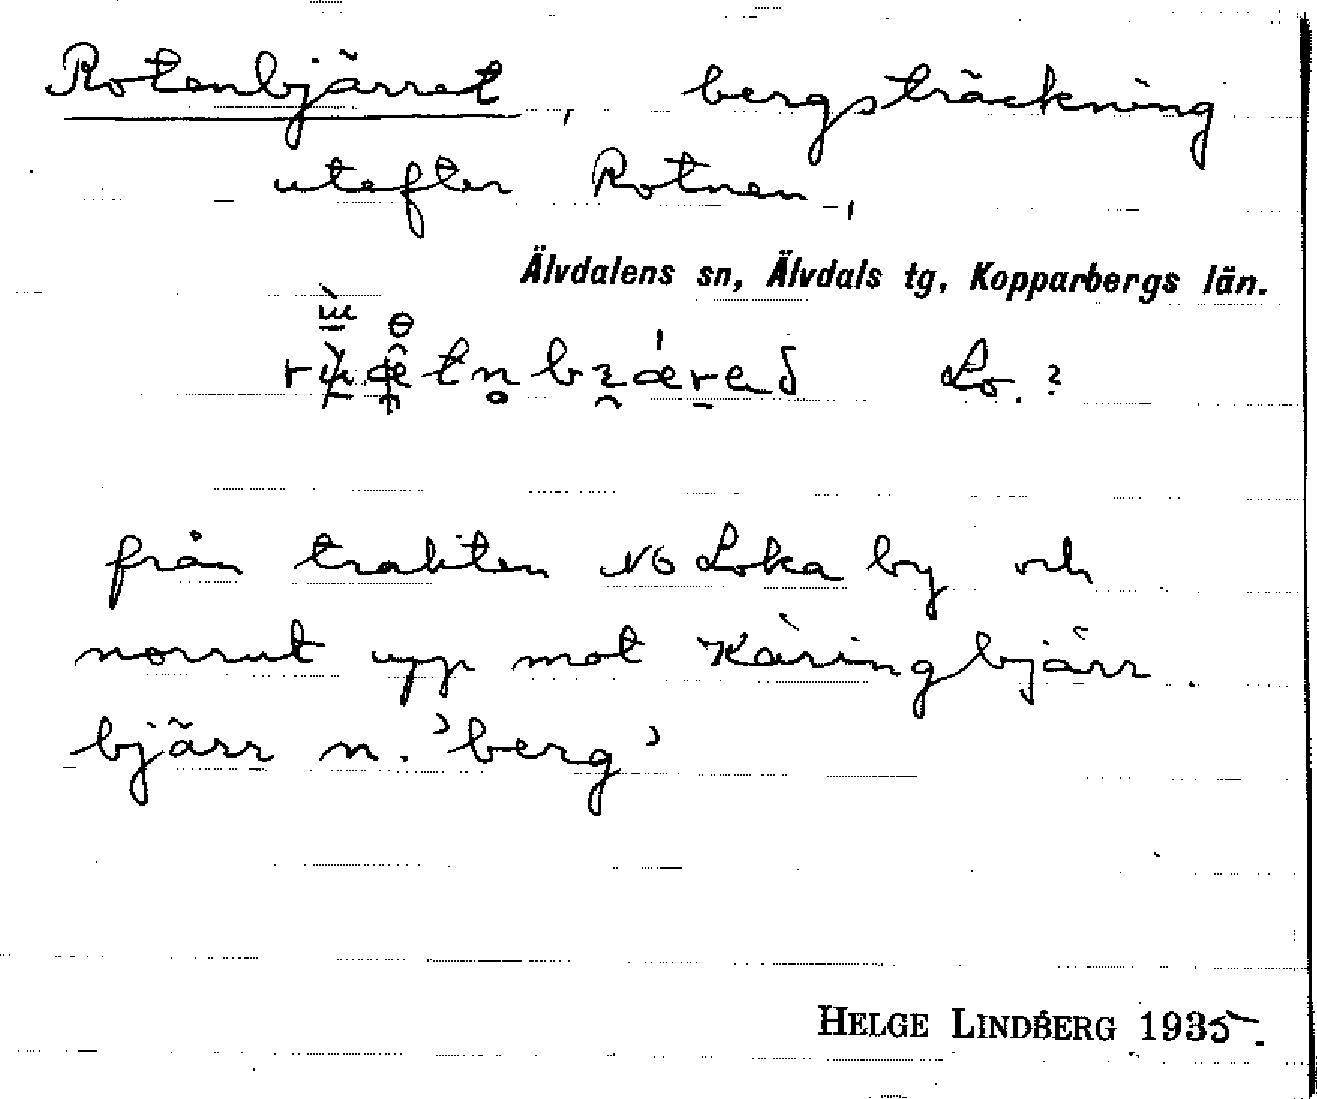 Rotenbjärret, bergsträckning
utefter Rotnen,
Älvdalens sn, Älvdals tg, Kopparbergs län.
Lo. ?
från trakten NO Loka by och
norrut upp mot Käringbjärr.
bjärr n. 'berg'
HELGE LINDBERG 1935.